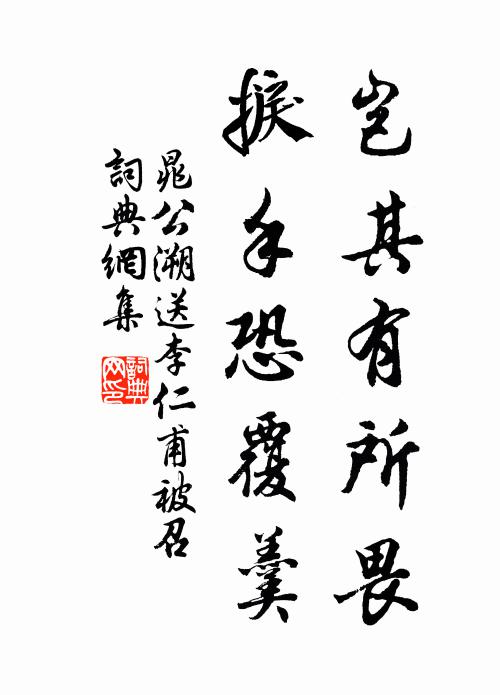 岂其有所畏
捩手恐覆羹
晁公溯送李仁甫被召
詞典網集
詞典网印